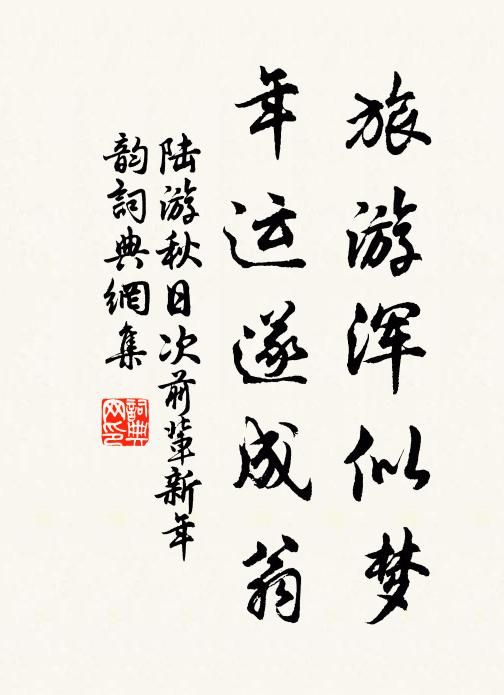 旅游浑似梦
年运遂成翁
陆游秋日次前辈新年
韵词典網集
詞典网印